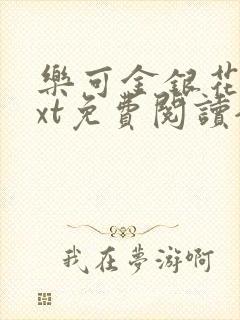 樂可金銀花
xt免費閱讀
我在夢游啊